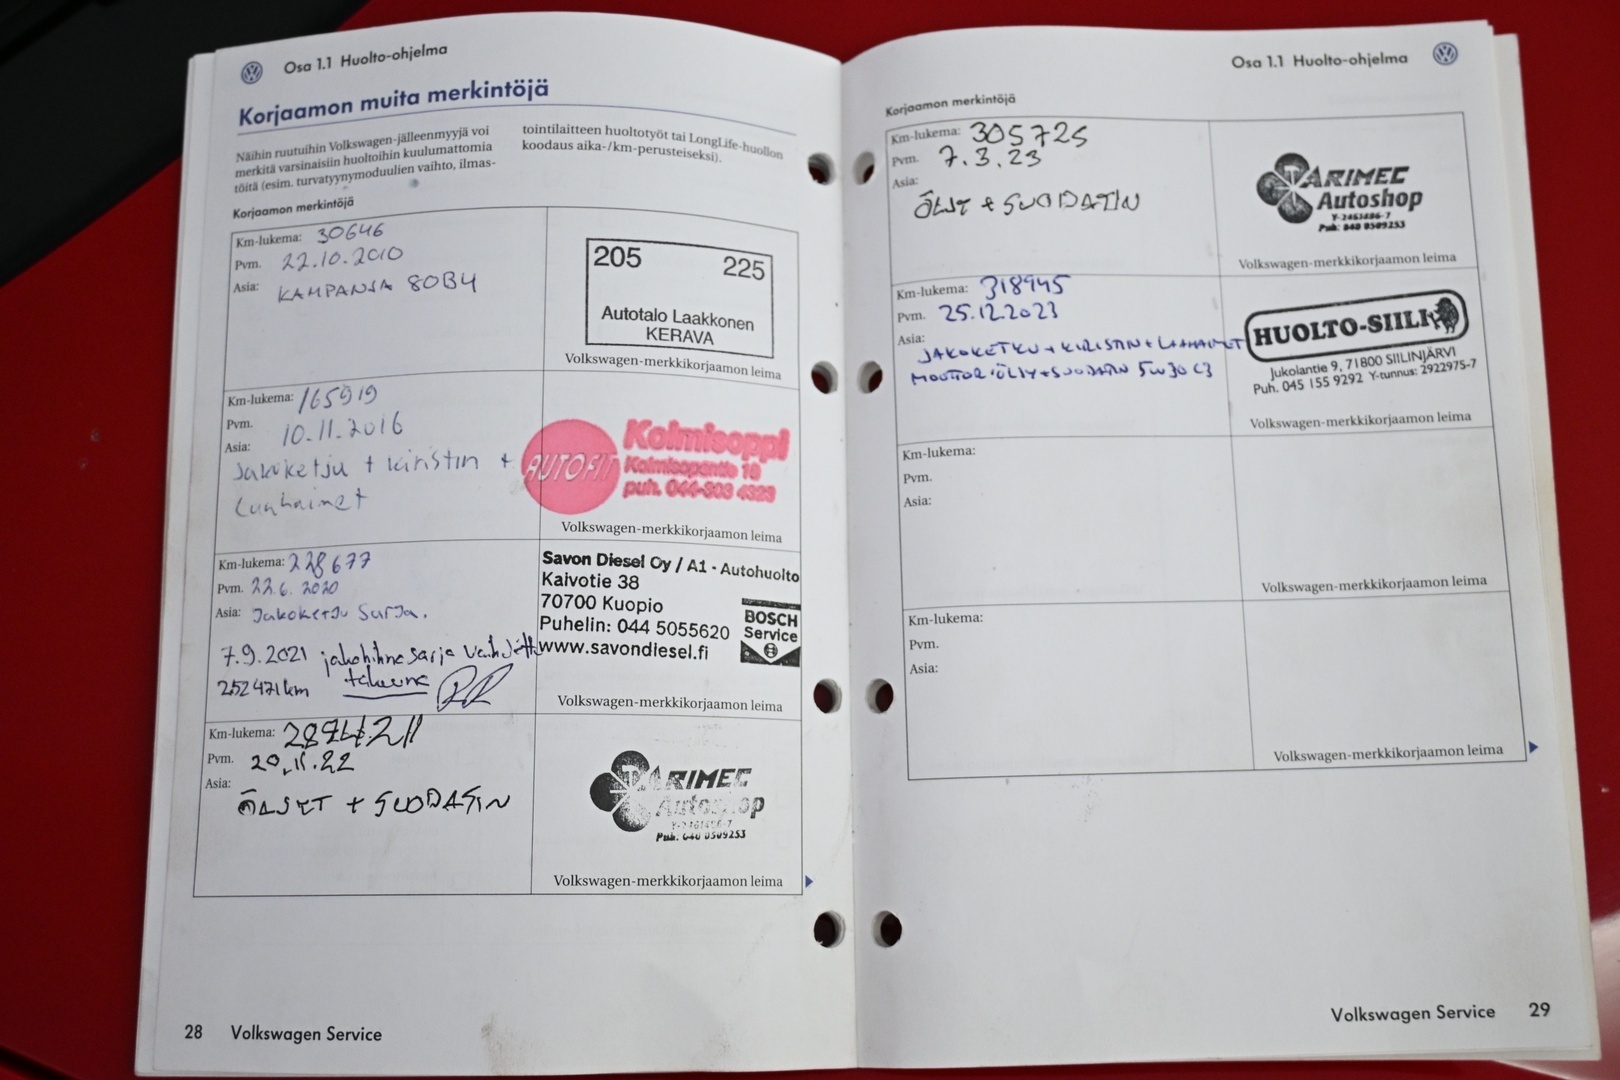 Osa 1.1 Huolto-ohjelma
Korjaamon muita merkintöjä
Näihin ruutuihin Volkswagen-jälleenmyyjä voi
merkitä varsinaisiin huoltoihin kuulumattomia
töitä (esim. turvatyynymoduulien vaihto, ilmas-
tointilaitteen huoltotyöt tai LongLife-huollon
koodaus aika-/km-perusteiseksi).
Korjaamon merkintöjä
Km-lukema: 30646
Pvm. 22.10.2010
Asia: KAMPANJA 80B4
205 225
Autotalo Laakkonen
KERAVA
Volkswagen-merkkikorjaamon leima
Km-lukema: 165919
Pvm. 10.11.2016
Asia:
Jakoketju + kiristin +
Luuhaimet
AUTOFIT
Kolmisoppi
Kolmisopentie 18
puh. 044-303 4323
Volkswagen-merkkikorjaamon leima
Km-lukema: 228677
Pvm. 22.6.2020
Asia: Jakoketju Sarja.
7.9.2021 jakohihnasarja
252471km
Savon Diesel Oy / A1 - Autohuolto
Kaivotie 38
70700 Kuopio
Puhelin: 044 5055620
www.savondiesel.fi
BOSCH
Service
Volkswagen-merkkikorjaamon leima
Km-lukema:
Pvm. 20.11.22
Asia:
ÖLJYT + SUODATIN
ARIMEC
Autoshop
Puh. 040 0509253
Volkswagen-merkkikorjaamon leima
28 Volkswagen Service
Osa 1.1 Huolto-ohjelma
Korjaamon merkintöjä
Km-lukema: 305725
Pvm. 7.3.23
Asia:
ÖLJYT + SUODATIN
ARIMEC
Autoshop
Y-2461486-7
Puh: 040 0509253
Volkswagen-merkkikorjaamon leima
Km-lukema: 318945
Pvm. 25.12.2023
Asia:
JAKOKETKU + KIRISTIN + LAAHAIMET
MOOTTORIÖLJY+SUODATIN 5W30 C3
HUOLTO-SIILI
Jukolantie 9, 71800 SIILINJÄRVI
Puh. 045 155 9292 Y-tunnus: 2922975-7
Volkswagen-merkkikorjaamon leima
Km-lukema:
Pvm.
Asia:
Volkswagen-merkkikorjaamon leima
Km-lukema:
Pvm.
Asia:
Volkswagen-merkkikorjaamon leima
Volkswagen Service 29